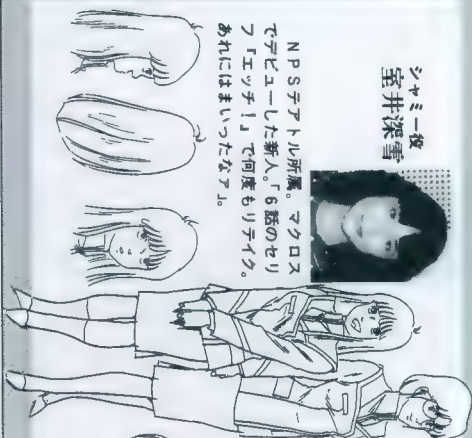 シャミー役
室井深雪
NPSテアトル所属。マクロス
でデビューした新人。「6話のセリ
フ『エッチ!』で何度もリテイク。
あれにはまいったなァ」。